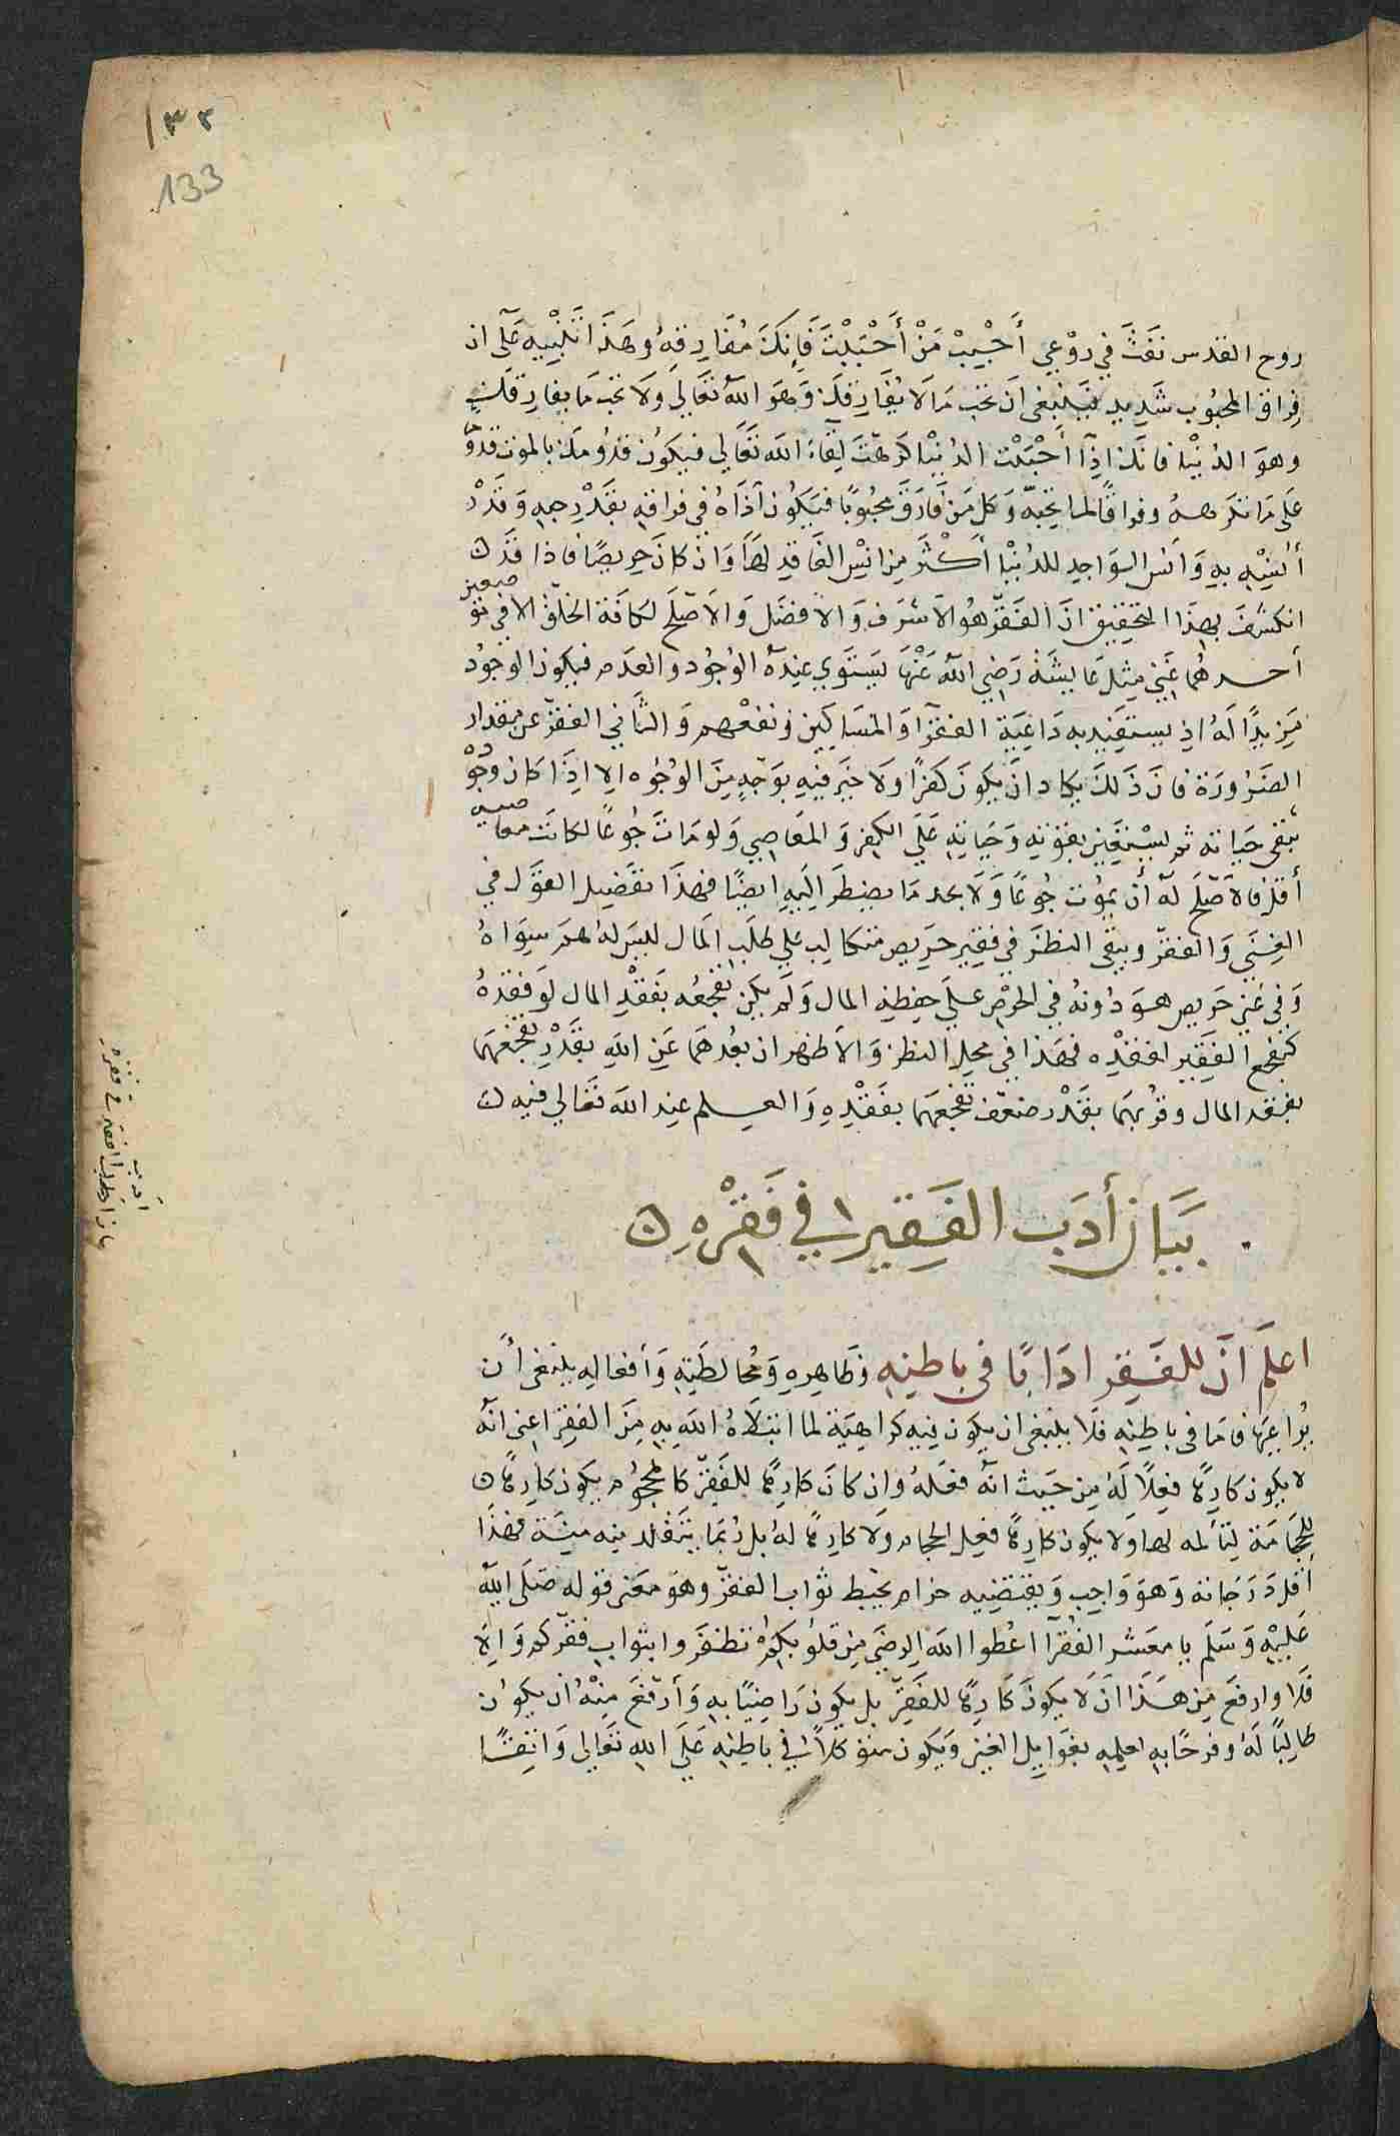 ١٣٣
133
روح القدس نَفَثَ في رَوْعي أَحْبِبْ مَنْ أَحْبَبْتَ فَإِنكَ مُفَارِقهُ وهَذَا تَنْبيه عَلى ان
فِراق المحبُوب شَديد فينبغي اَن تحب مَا لَا يُفَارقكَ وَهوَ اللهُ تعَالي ولَا تحب مَا يفارقكَ
وهوَ الدُنيَا فانكَ اذِا أَحْبَبْت الدُنيَا كرهْتَ لِقَاءَ الله تعَالي فيكوُن قدُومكَ بالموت
عَلى مَا تكرههُ وفراقاً لما تحِبّه وَكل مَن فَارَقَ محبُوبًا فيَكُون أذَاهُ في فراقهِ بقَدْر حبهِ وَقَدْر
أُنسِهِ بهِ وَاُنس الوَاجِدِ للدُنيَا أكْثَر مِن اُنسِ الفَاقِدِ لهَا وَانْ كانَ حَريصًا فاذا قَدْ
انكشفَ بهذَا التحقيق انَّ الفَقرَ هوُ الاشرَف وَالافضَل وَالاَصْلَح لكافَة الخلق الا في موضعين
أحدهُما غِني مِثل عَايشَة رَضِي اللهُ عَنْهَا يَستَوي عِندَهُ الوُجُود والعدَم فيكون الوُجوُد
مَزيدًا لهُ اذِ يستفِيد به دَاعِيَة الفقرَا وَالمسَاكين ونفعهم وَالثَاني الفَقر عن مقدار
الضرُورَة فان ذَلكَ يكاد انَ يكونَ كفرًا ولَا خيرَ فيهِ بوَجْهٍ مِنَ الوُجُوه الا اذِا كانَ وجُوْ
تبقى حَيَاته ثم يسْتعين بقوتهِ وَحَيَاتهِ عَلَى الكفر وَالمعَاصِي وَلو مَاتَ جُوعًا لكانَت معَاصيه
أقل فالاَصْلَح لهُ أن يمُوت جُوعًا وَلَا يجد مَا يضطر اليَهِ ايضًا فهذَا تفصِيل القوَل في
الغِني وَالفَقر ويبقى النظَرَ في فقِير حَريص متكالب علي طلَب المَال ليسَ لهُ همّ سِوَاهُ
وَفي غنِي حَريص هوَ دُونهُ في الحِرْص علَي حفظِهِ المال وَلَم يكن تفجعُه بفَقْدِ المال لوَ فقدهُ
كتفجع الفَقِير لفقدِه فهَذا في محلِ النظر وَالاظهر ان بعُدهَما عَن الله بقدَرِ تفجعهمَا
بفقد المال وقرْبهمَا بقَدْر ضعْف تفجعهمَا بفقْدِهِ وَالعِلم عند اللهِ تعَالي فيه
بَيَان أدَب الفَقير في فَقْرهِ
اعلَم أنَّ للفَقير ادَابًا في باطنهِ وظَاهِرهِ وَمُخالطَتِهِ وَأفعَالهِ ينبغي أن
يُراعِيهَا فامَا في باطنِهِ فلَا ينبغي ان يكون فيهِ كراهِيَة لما ابتلَاهُ اللهِ بهِ مِنَ الفقر اعني انَّهُ
لا يكون كارِهًا فعِلَ اللهِ مِن حَيث انهُ فعَلهُ وان كانَ كارِهًا للفَقر كالمحجُوم يكون كارِهًا
للحجَامَة لتَألمه بهَا وَلا يكون كارِهًا فعِل الحجام ولَا كارِهًا لهُ بل رُبَما يتقَلد منه مِنَّة فهذَا
أقل دَرَجَاته وَهوَ وَاجب وَنقِيضهِ حرَام يحبِط ثواب الفقر وهوَ معنى قوله صَلَى اللهُ
عَليْهِ وَسَلم يا معَشر الفُقرَا اعُطوا اللهَ الرضَى مِن قلوُبكمُ تظفَروا بثوَاب فقركم وَالا
فَلا وارفعَ مِن هذَا انَ لَا يكونَ كَارِهًا للفَقر بل يكون رَاضيًا بهِ وَأرْفعَ مِنْهُ ان يكوُن
طَالبًا لهُ وفرحًا بهِ لعلمهِ بغَوايل الغنى وَيكون متوكلاً في باطنهِ عَلَى اللهِ تعَالى وَاثقًا